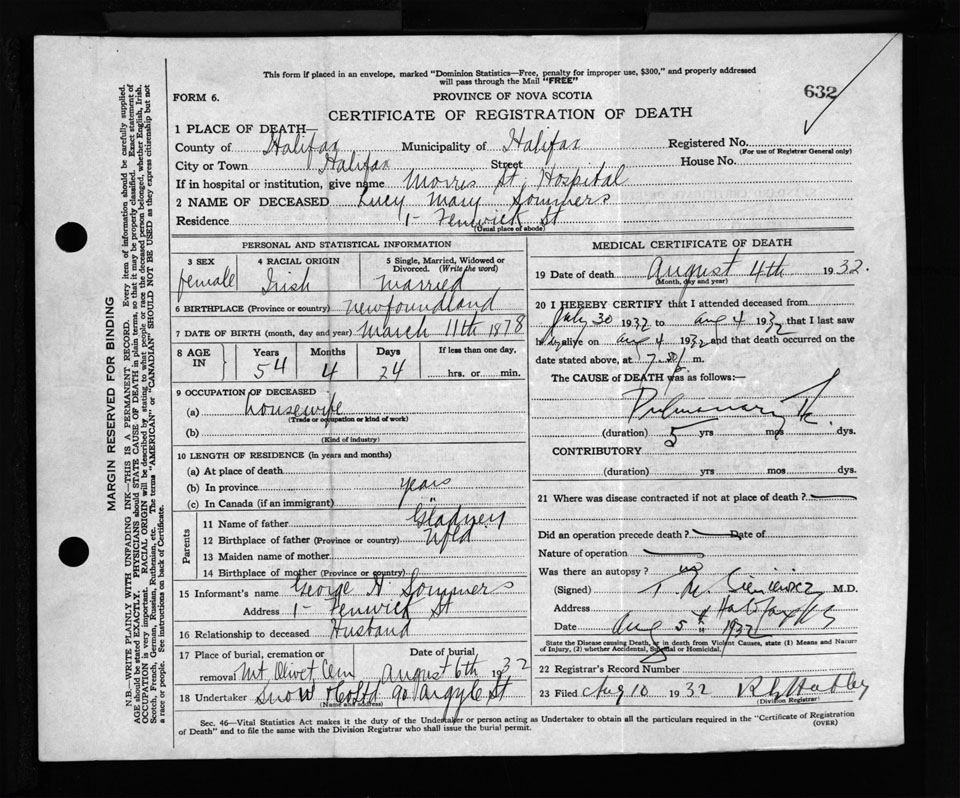 This form if placed in an envelope, marked "Dominion Statistics—Free, penalty for improper use, $300," and properly addressed
will pass through the Mail "FREE"
632
FORM 6. PROVINCE OF NOVA SCOTIA
CERTIFICATE OF REGISTRATION OF DEATH
1 PLACE OF DEATH—
County of Halifax Municipality of Halifax Registered No.
(For use of Registrar General only)
City or Town Halifax Street House No.
If in hospital or institution, give name Morris St. Hospital
2 NAME OF DECEASED Lucy Mary Sommers
Residence 1- Fenwick St
(Usual place of abode)
PERSONAL AND STATISTICAL INFORMATION
3 SEX 4 RACIAL ORIGIN 5 Single, Married, Widowed or
Divorced. (Write the word)
female Irish Married
6 BIRTHPLACE (Province or country) Newfoundland
7 DATE OF BIRTH (month, day and year) March 11th 1878
8 AGE IN Years Months Days If less than one day,
54 4 24 hrs. or min.
9 OCCUPATION OF DECEASED
(a) housewife
(Trade or occupation or kind of work)
(b)
(Kind of industry)
10 LENGTH OF RESIDENCE (in years and months)
(a) At place of death
(b) In province years
(c) In Canada (if an immigrant) "
Parents
11 Name of father
12 Birthplace of father (Province or country) Nfld
13 Maiden name of mother
14 Birthplace of mother (Province or country)
15 Informant's name George H. Sommers
Address 1- Fenwick St
16 Relationship to deceased Husband
17 Place of burial, cremation or Date of burial
removal Mt. Olivet Cem August 6th 1932
18 Undertaker Snow & Co Ltd 90 Argyle St
(Name and address)
MEDICAL CERTIFICATE OF DEATH
19 Date of death August 4th 1932.
(Month, day and year)
20 I HEREBY CERTIFY that I attended deceased from
July 30 1932 to Aug 4 1932 that I last saw
alive on Aug 4 1932 and that death occurred on the
date stated above, at m.
The CAUSE of DEATH was as follows:—
Pulmonary Tc.
(duration) 5 yrs mos dys.
CONTRIBUTORY
(duration) yrs mos dys.
21 Where was disease contracted if not at place of death?
Did an operation precede death? Date of
Nature of operation
Was there an autopsy? no
(Signed) T. M. Sieniewicz M.D.
Address Halifax NS
Date Aug 5th 1932
State the Disease causing Death, or in death from Violent Causes, state (1) Means and Nature
of Injury, (2) whether Accidental, Suicidal or Homicidal.
22 Registrar's Record Number
23 Filed Aug 10 1932
(Division Registrar)
Sec. 46—Vital Statistics Act makes it the duty of the Undertaker or person acting as Undertaker to obtain all the particulars required in the "Certificate of Registration
of Death" and to file the same with the Division Registrar who shall issue the burial permit.
(OVER)
MARGIN RESERVED FOR BINDING
N.B.—WRITE PLAINLY WITH UNFADING INK—THIS IS A PERMANENT RECORD. Every item of information should be carefully supplied.
AGE should be stated EXACTLY. PHYSICIANS should STATE CAUSE OF DEATH in plain terms, so that it may be properly classified. Exact statement of
OCCUPATION is very important. RACIAL ORIGIN will be described by stating to what people or race the deceased person belonged, whether English, Irish,
Scotch, French, German, Russian, Ruthenian, etc. The terms "AMERICAN" or "CANADIAN" SHOULD NOT BE USED as they express citizenship but not
a race or people. See instructions on back of Certificate.